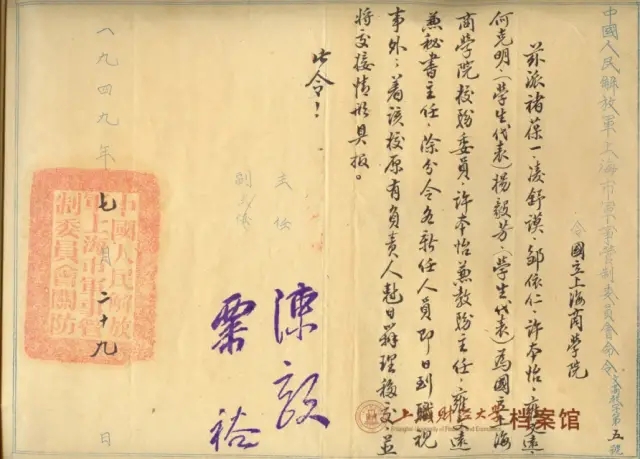 中國人民解放軍上海市軍事管制委員會命令
令 國立上海商學院
茲派褚葆一、凌舒謨、鄒依仁、許本怡、雍文遠、
何克明、(學生代表)楊毅芳、(學生代表)為國立上海
商學院校務委員、許本怡兼教務主任、雍文遠
兼秘書主任、除分令各新任人員即日到職視
事外、着該校原有負責人尅日辦理移交、並
將交接情形具報。
此令!
主任 陳毅
副主任 粟裕
一九四九年七月二十九日
中國人民解放軍上海市軍事管制委員會關防
上海财经大学 档案馆
Shanghai University of Finance and Economics